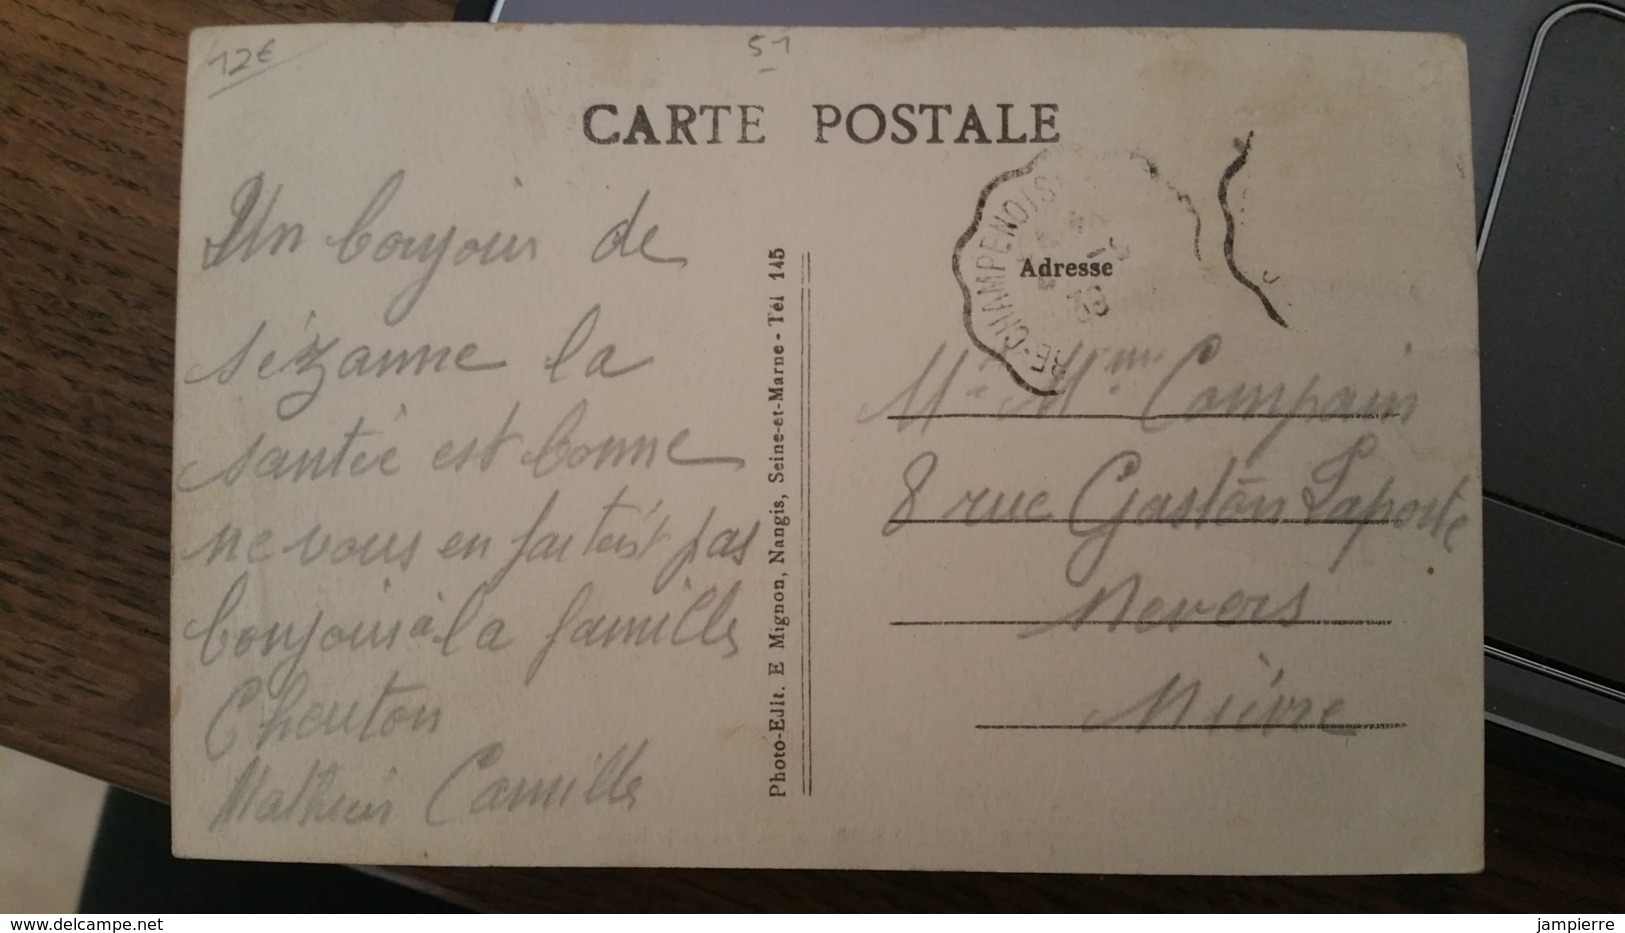 12€
51
CARTE POSTALE
Un bonjour de
sézanne la
santée est bonne
ne vous en fait pas
bonjour à la famille
Chenton
Mathieu Camille
Photo-Edit. E Mignon, Nangis, Seine-et-Marne - Tél 145
RE-CHAMPENOISE
Adresse
Mr Mme Compain
8 rue Gaston Laporte
Nevers
Nièvre
www.delcampe.net
jampierre